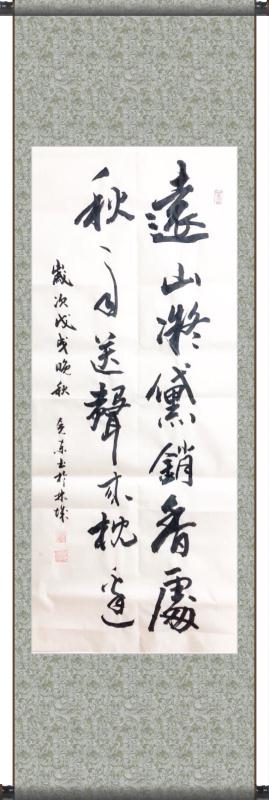 遠山凝黛銷香處
秋〻自送聲來枕邊
歲次戊戌晚秋 東書於木城